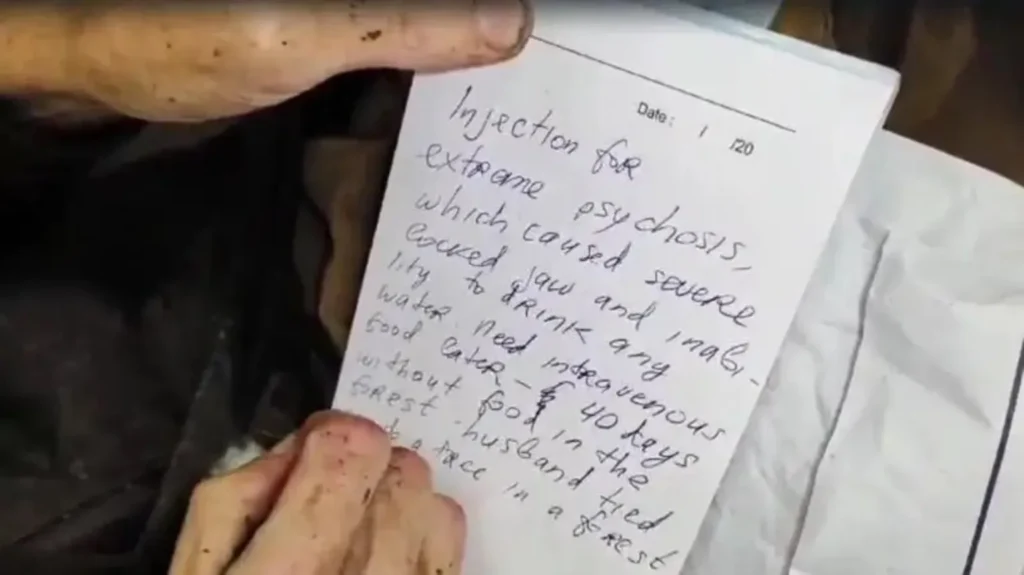 Date: / /20
Injection for
extrame psychosis,
which caused severe
locked jaw and inabi-
lity to drink any
water. Need intravenous
food later – 40 days
without food in the
forest. husband tied
to a tree in a forest